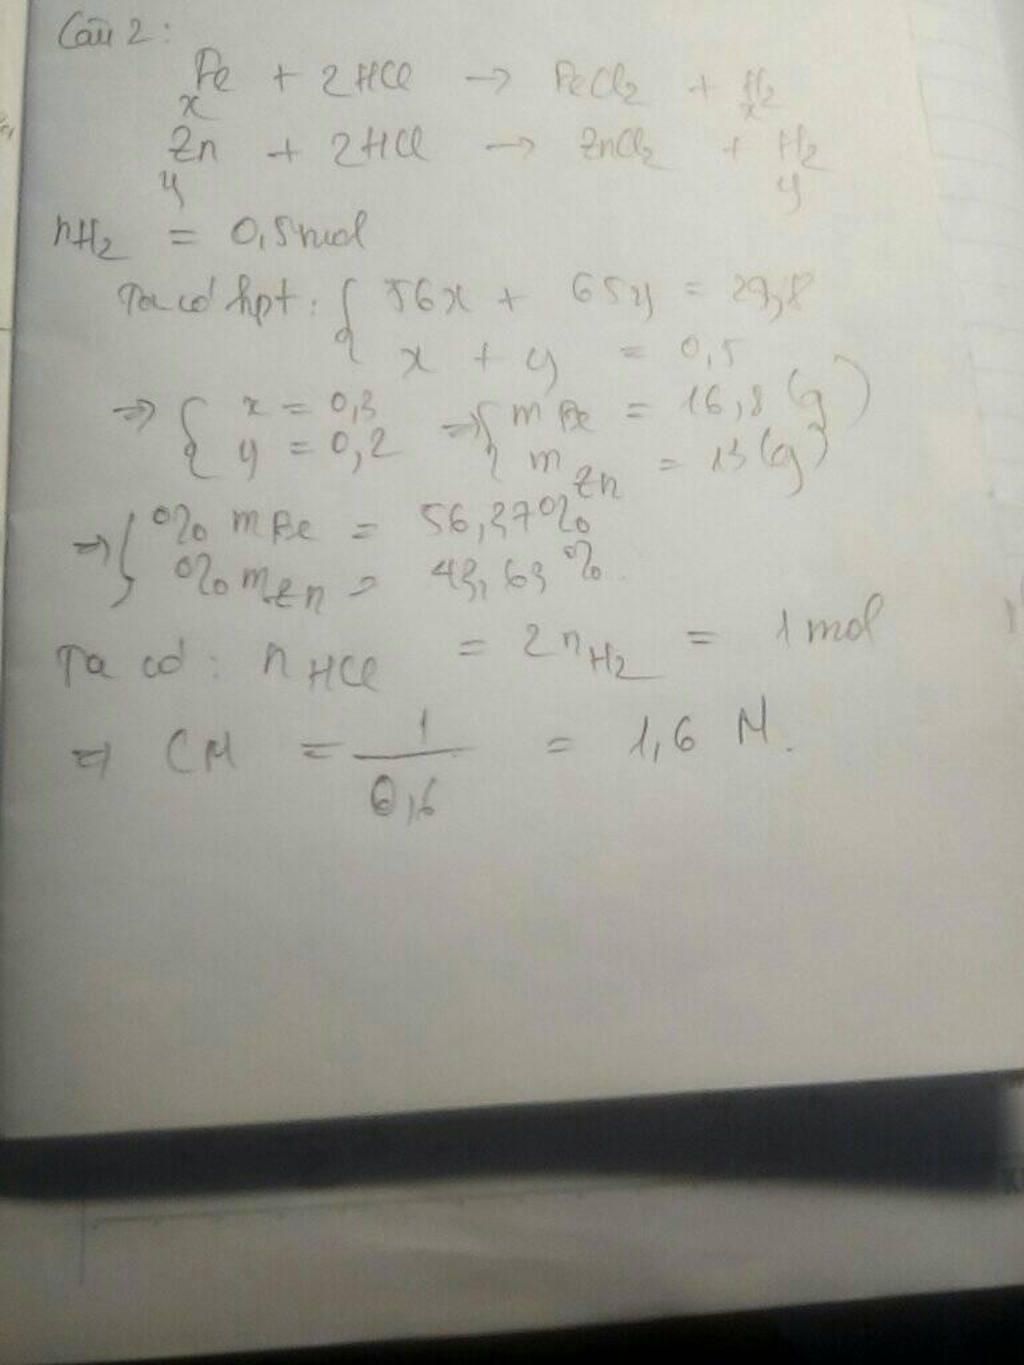 Câu 2:
Fe + 2HCl → FeCl2 + H2
x x
Zn + 2HCl → ZnCl2 + H2
y y
nH2 = 0,5 mol
Ta có hpt: { 56x + 65y = 29,8
x + y = 0,5
⇒ { x = 0,3 ⇒ { mFe = 16,8 (g)
y = 0,2 mZn = 13 (g)
⇒ { %mFe = 56,37%
%mZn = 43,63%.
Ta có: nHCl = 2nH2 = 1 mol
⇒ CM = 1/0,6 = 1,6 M.